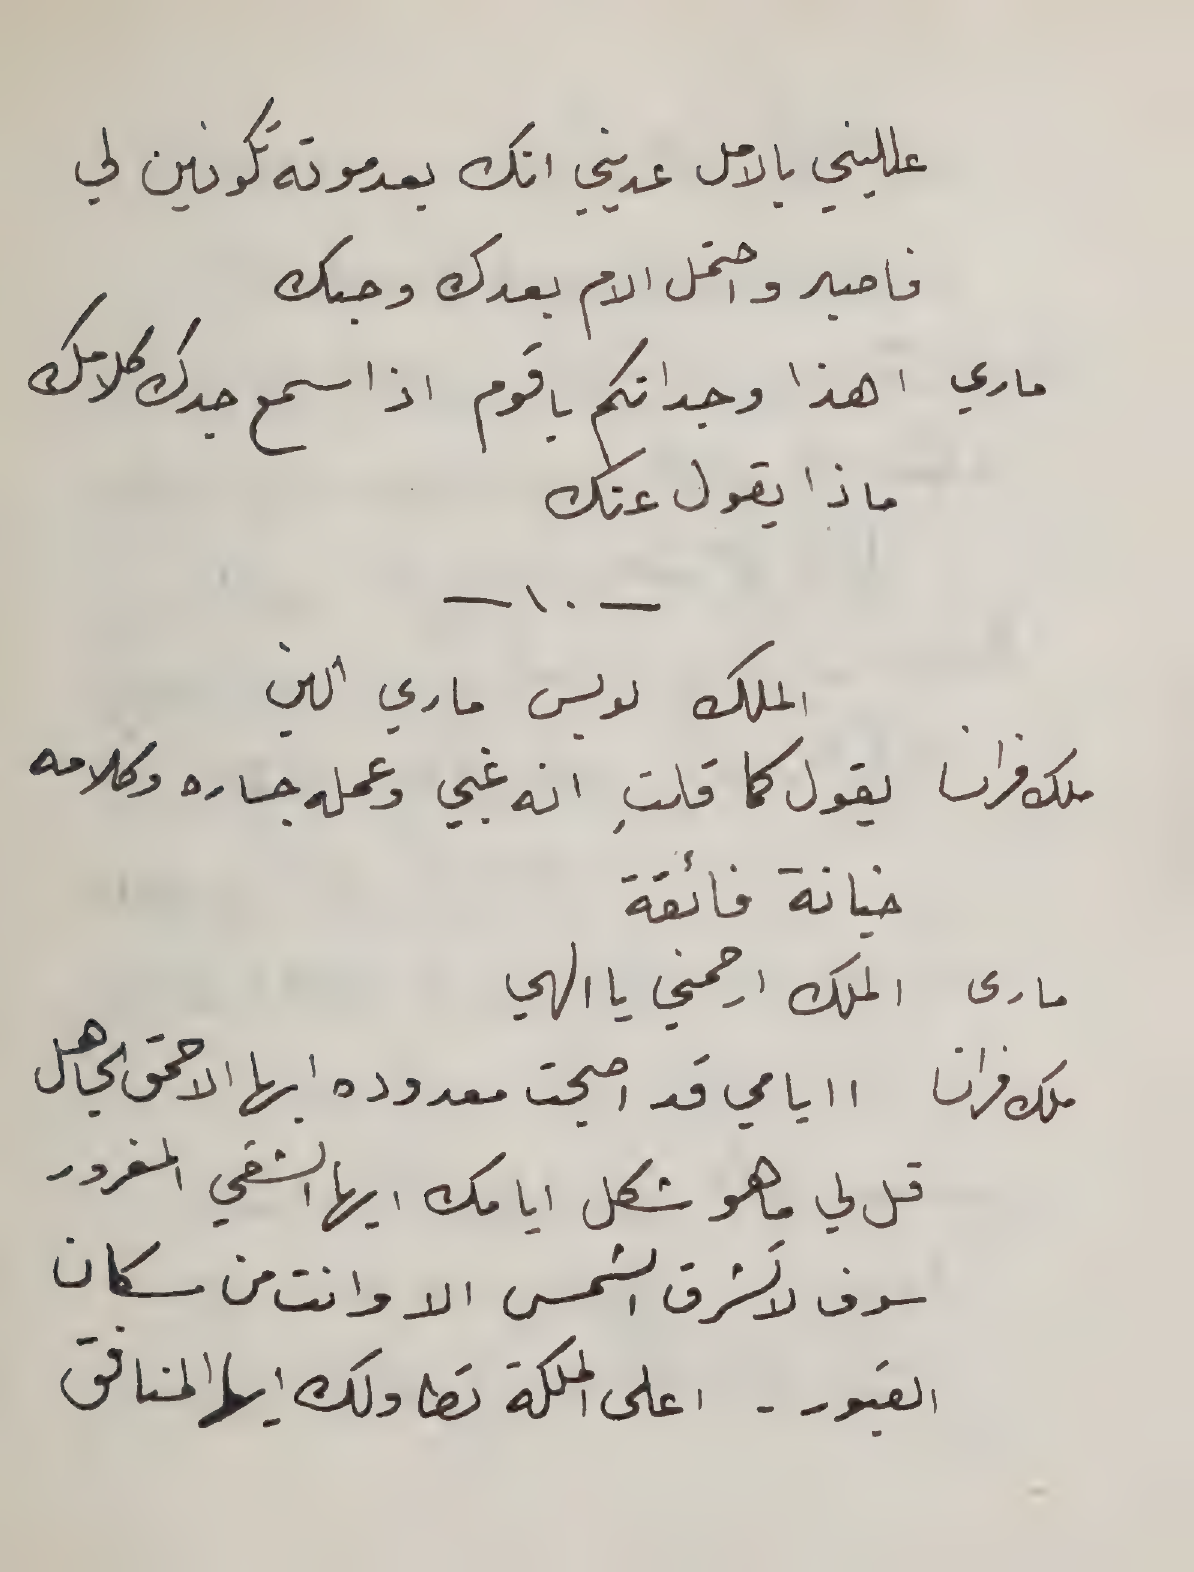 عللیني بالامل عديني انك بعد موته تكونين لي
فاصبر واحتمل الام بعدك وحبك
ماري اهذا وجدانكم ياقوم اذا سمع جدك كلامك
ماذا يقول عنك
— ١٠ —
الملك لويس ماري الين
ملك فرانسا يقول كما قلتِ انه غبي وعمله جساره وكلامه
خيانة فائقة
مارى الملك ارحمني يا الهي
ملك فرانسا اايامي قد اصبحت معدوده ايها الاحمق الجاهل
قل لي ماهو شكل ايامك ايها الشقي المغرور
سوف لاتشرق الشمس الا وانت من سكان
القبور - اعلى الملكة تطاولك ايها المنافق